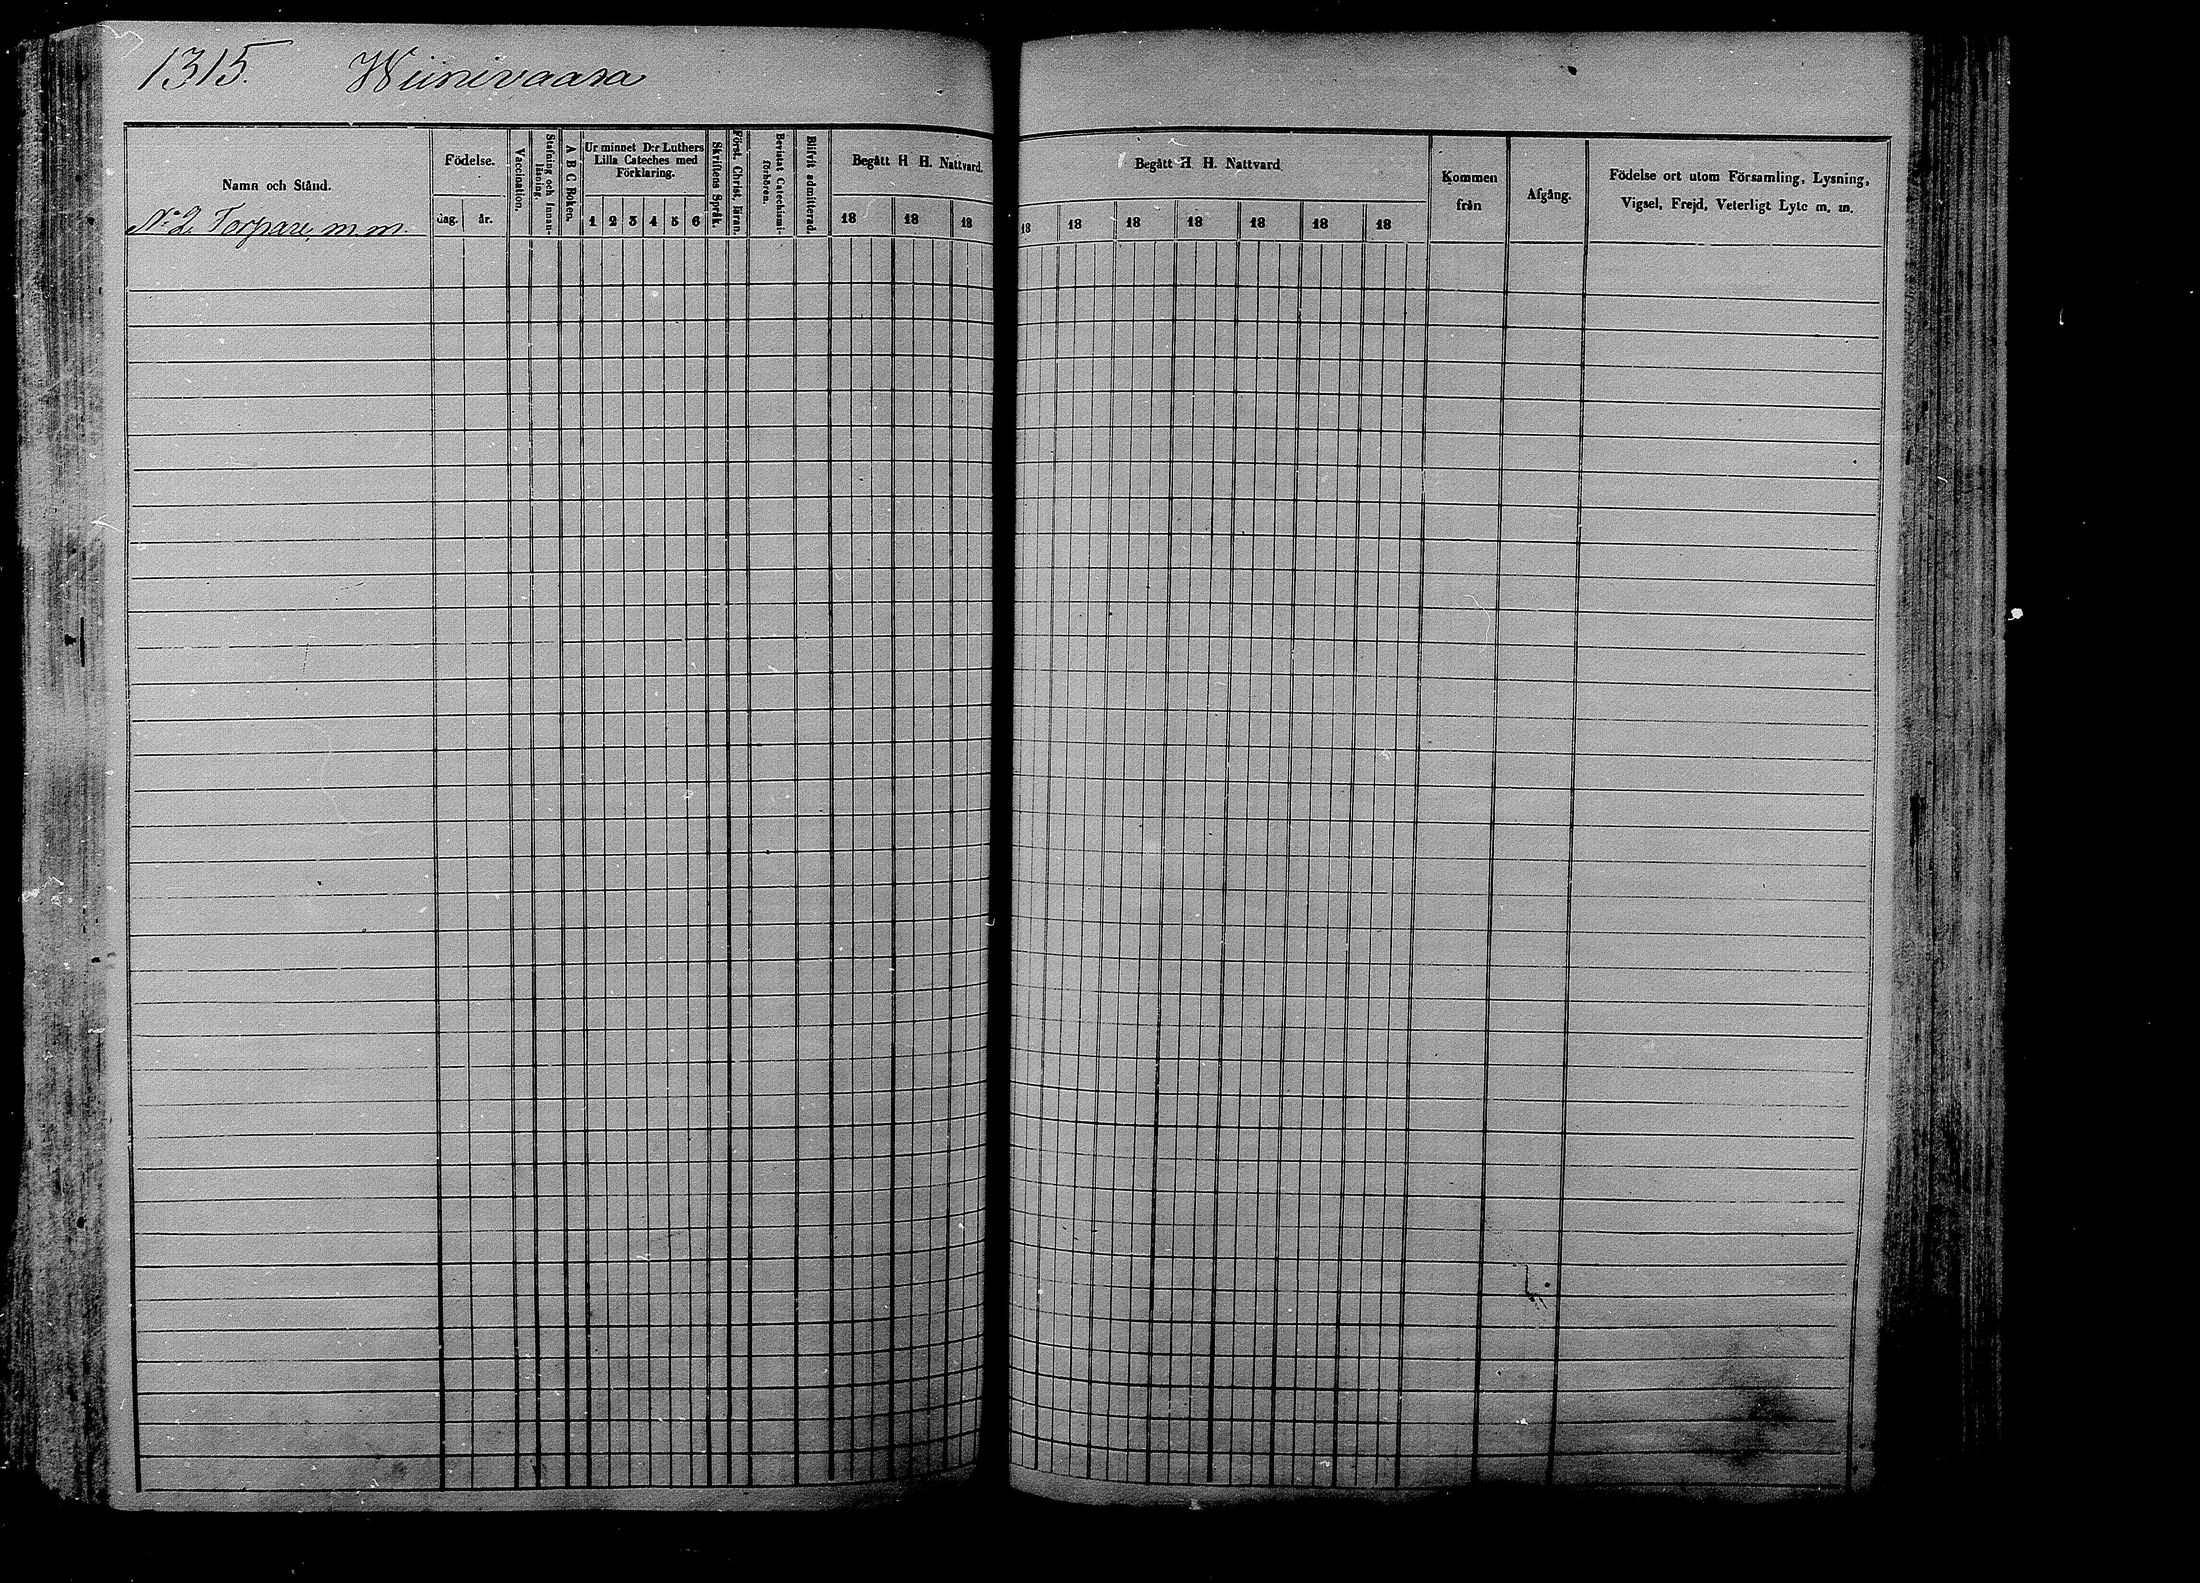 1315. Wiinivaara
Namn och Stånd.
No 2, Torpare, m. m.
Födelse.
dag. år.
Vaccination.
Stafning och Innan-
läsning.
A B C Boken.
Ur minnet D:r Luthers
Lilla Cateches med
Förklaring.
1 2 3 4 5 6
Skriftens Språk.
Först. Christ. läran.
Bevistat Catechismi-
förhören.
Blifvit admitterad.
Begått H H. Nattvard.
18 18 18
Begått H H. Nattvard
18 18 18 18 18 18 18
Kommen
från
Afgång.
Födelse ort utom Församling, Lysning,
Vigsel, Frejd, Veterligt Lyte m. m.